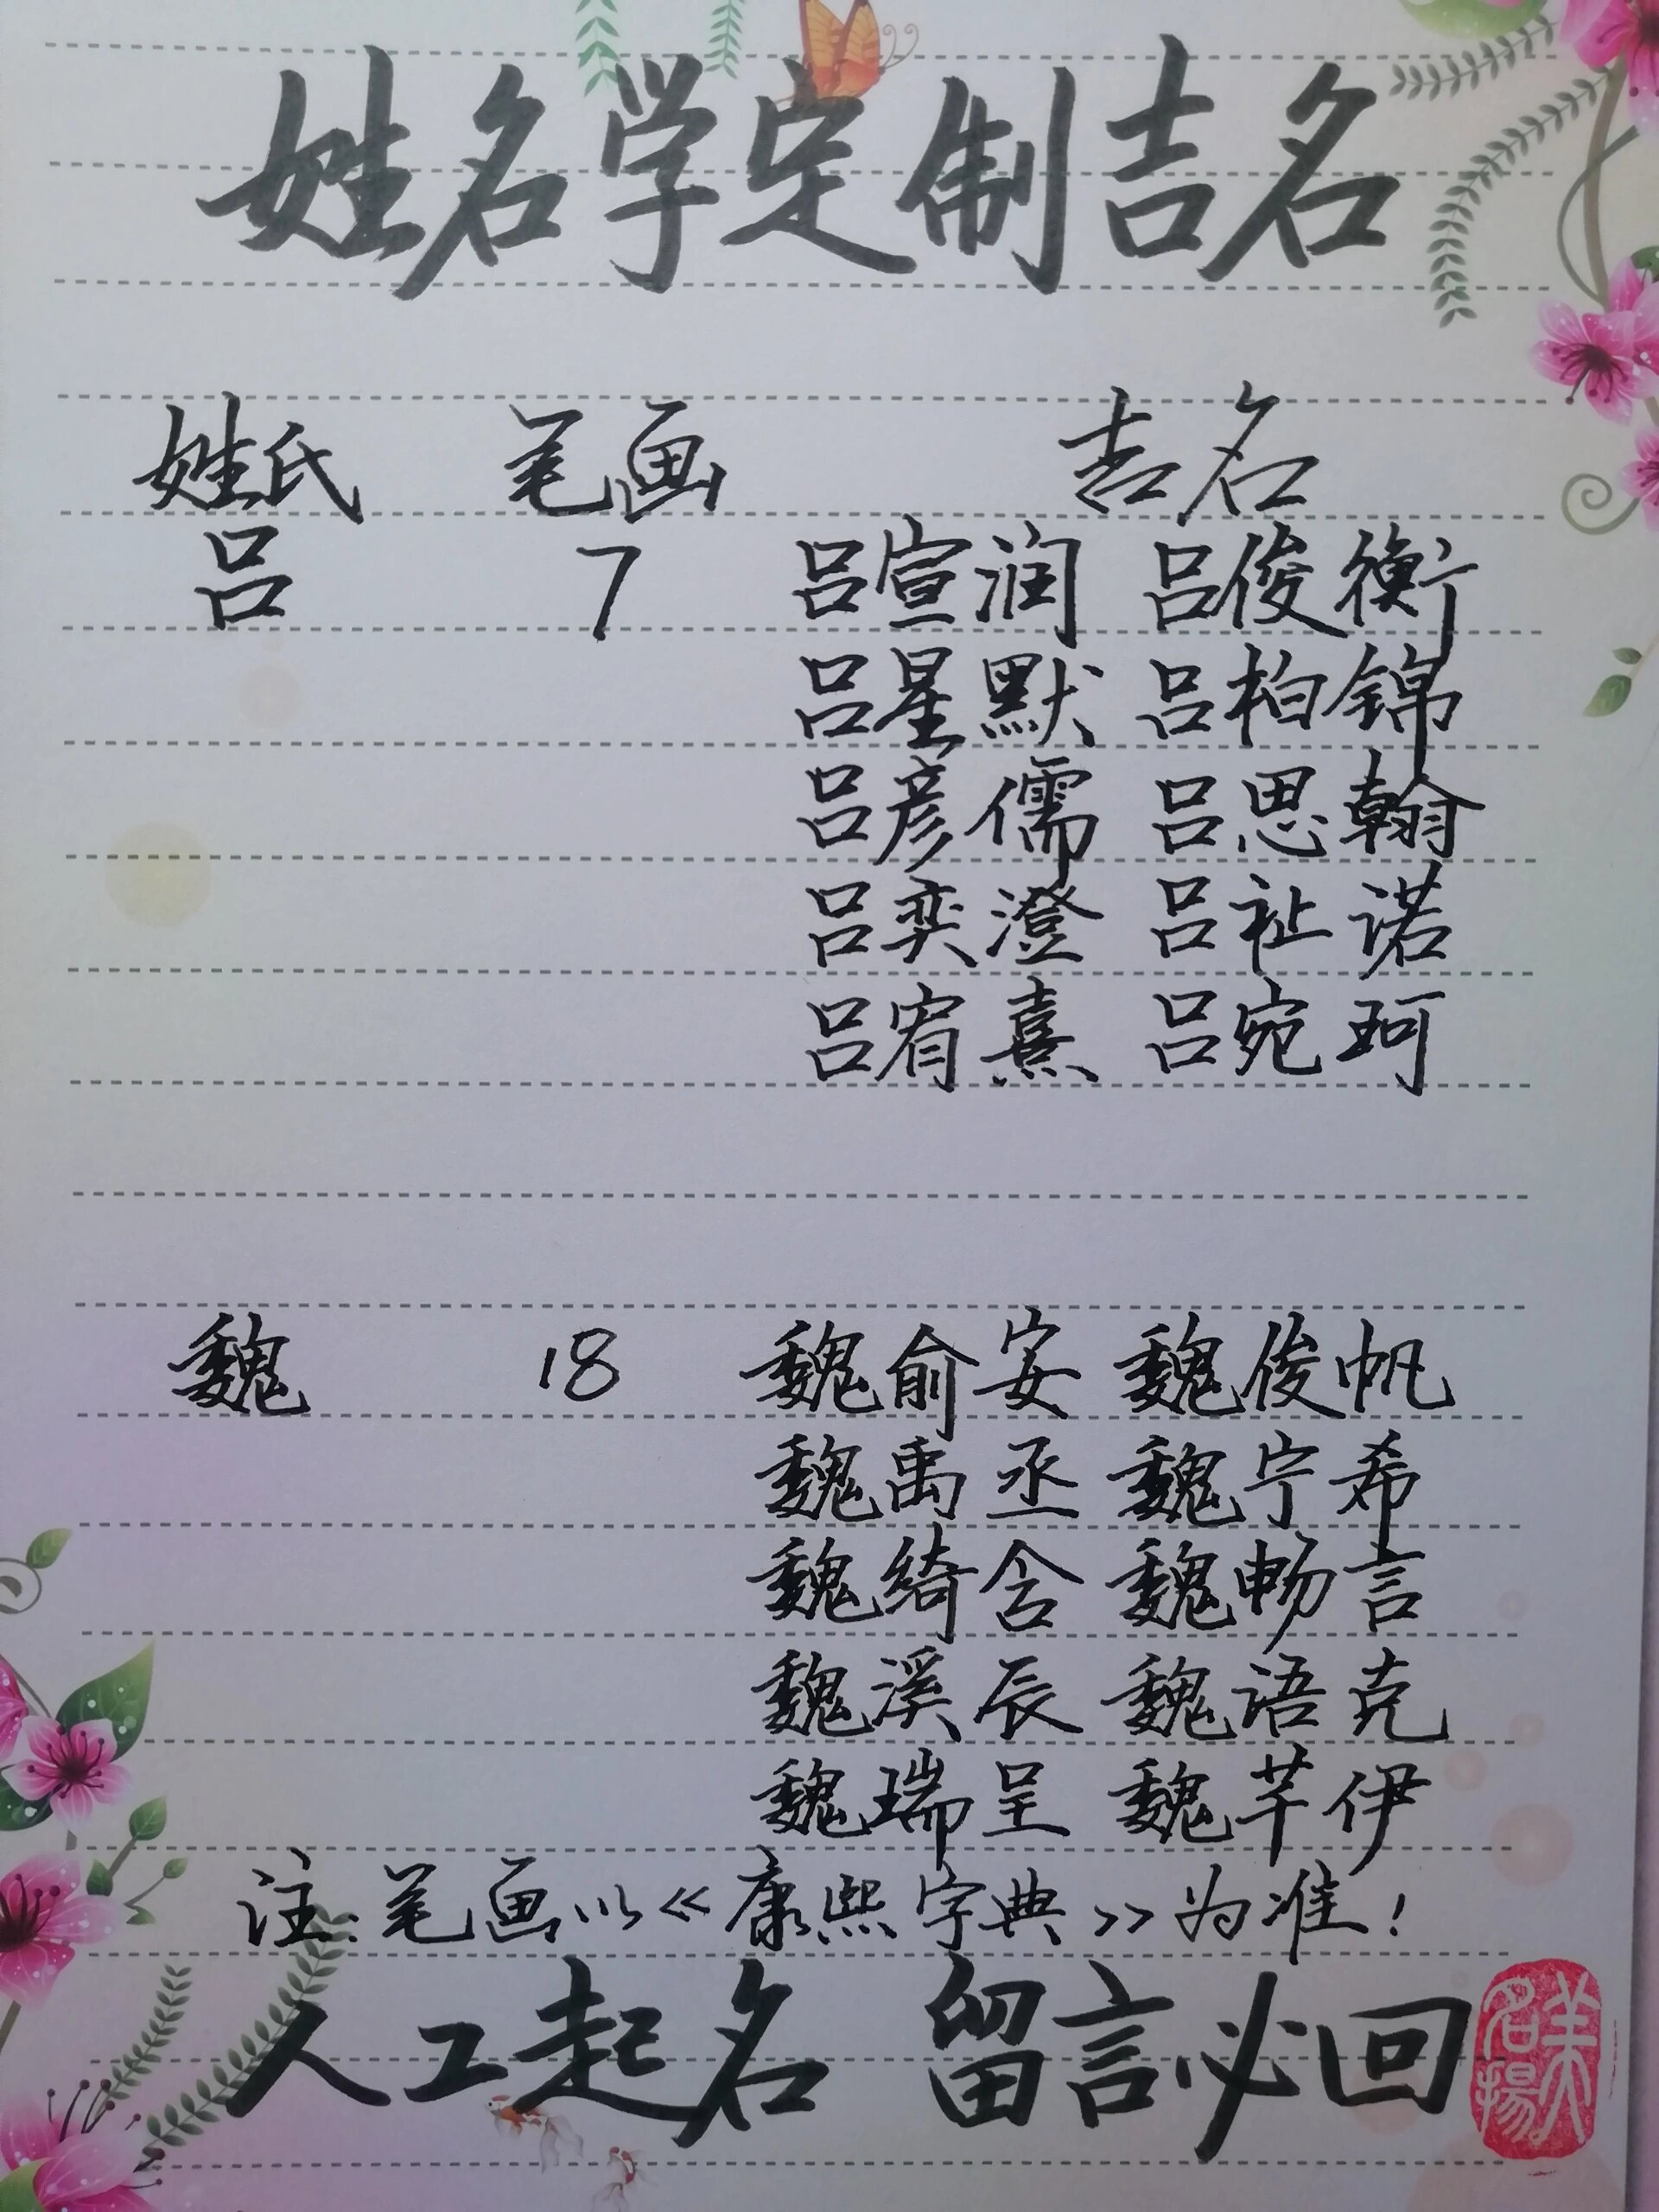 姓名学定制吉名
姓氏 笔画 吉名
吕 7 吕宣润 吕俊衡
吕星默 吕柏锦
吕彦儒 吕思翰
吕奕澄 吕祉诺
吕宥熹 吕宛珂
魏 18 魏俞安 魏俊帆
魏禹丞 魏宁希
魏绮含 魏畅言
魏溪辰 魏语克
魏瑞呈 魏芊伊
注:笔画以《康熙字典》为准!
人工起名 留言必回
美名扬